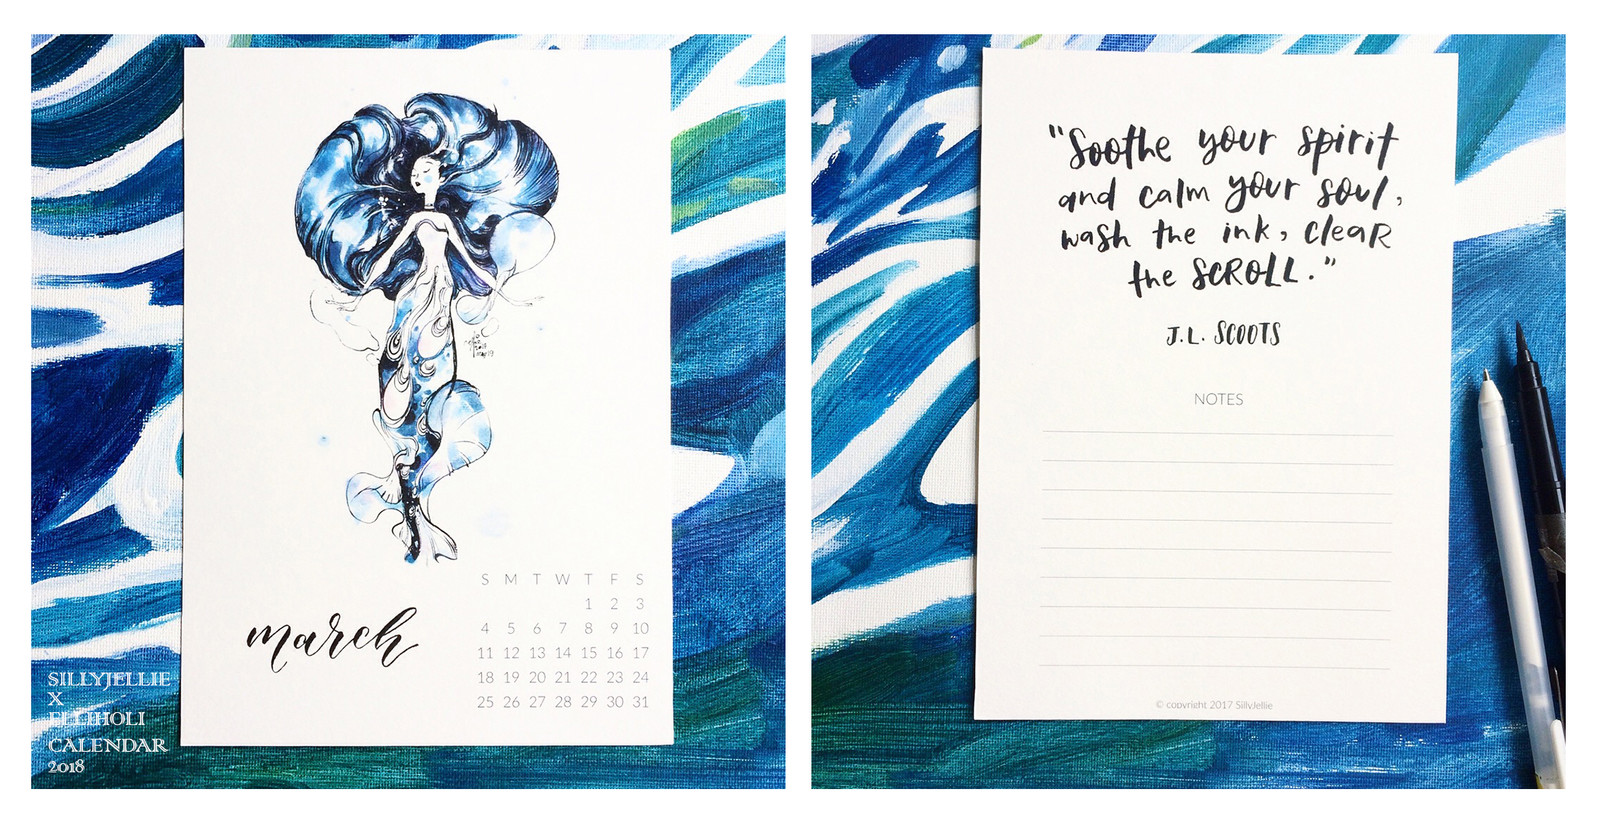 S M T W T F S
1 2 3
4 5 6 7 8 9 10
11 12 13 14 15 16 17
18 19 20 21 22 23 24
25 26 27 28 29 30 31
march
SILLYJELLIE
X
ELLIHOLI
CALENDAR
2018
"Soothe your spirit
and calm your soul,
wash the ink, cleaR
the SCROLL."
J.L. SCOOTS
NOTES
© copyright 2017 SillyJellie